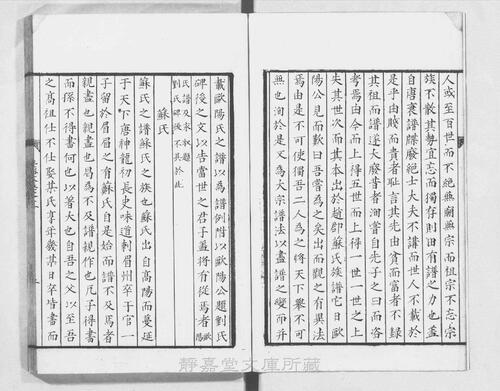 人或至百世而不絶無廟無宗而祖宗不忘宗
族不散其勢宜忘而獨存則由有譜之力也蓋
自唐衰譜牒廢絶士大夫不講而世人不載於
是乎由賤而貴者耻言其先由貧而富者不錄
其祖而譜遂大廢昔者洵嘗自先子之曰而咨
考焉由今而上得五世由五世而上得一世一世之上
失其世次而其本出於趙郡蘇氏族譜它日歐
陽公見而歎曰吾嘗為之矣出而觀之有異法
焉由是不可使獨吾二人為之將天下舉不可
無也洵於是又為大宗譜法以盡譜之變而并
載歐陽氏之譜以為譜例附以歐陽公題劉氏
碑後之文以告當世之君子蓋將有從焉者歐陽
氏譜及永叔題
劉氏碑後不具於此
蘇氏
蘇氏之譜蘇氏之族也蘇氏出自高陽而蔓延
于天下唐神龍初長史味道刺眉州卒于官一
子留於眉眉之有蘇氏自是始而譜不及焉者
親盡也親盡也曷為不及譜規作也凡子得書
而孫不得書何也以著大也自吾之父以至吾
之高祖仕不仕娶某氏享年幾某日卒皆書而
靜嘉堂文庫所藏